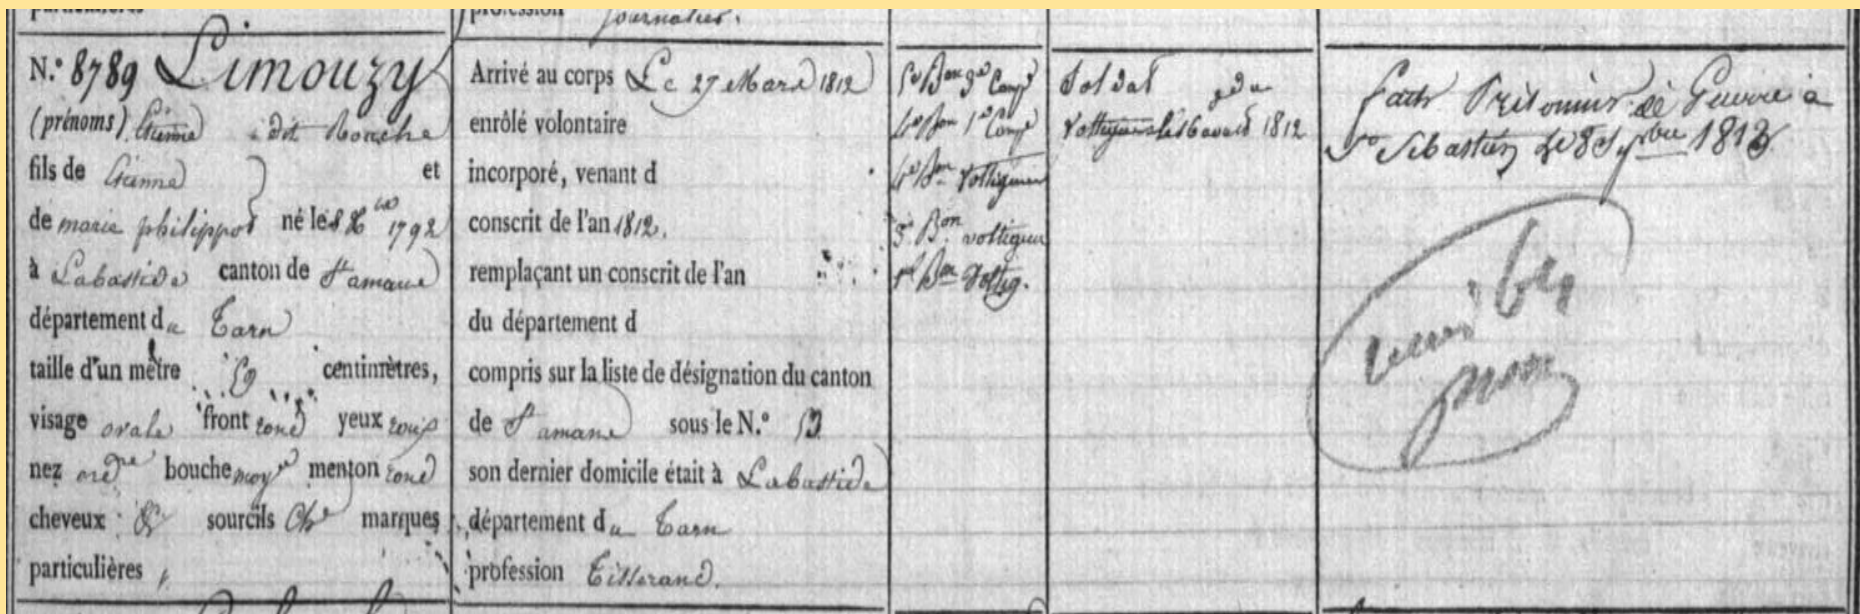 profession journalier.
N.° 8789 Limouzy
(prénoms) Etienne dit Rouche
fils de Etienne et
de marie philippot né le 8 Xbre 1792
à Labastide canton de St amans
département du Tarn
taille d'un mètre 59 centimètres,
visage ovale front rond yeux roux
nez ordre bouche moyne menton rond
cheveux & sourcils Chn marques
particulières
Arrivé au corps Le 27 Mars 1812
enrôlé volontaire
incorporé, venant d
conscrit de l'an 1812.
remplaçant un conscrit de l'an
du département d
compris sur la liste de désignation du canton
de St amans sous le N.° 53
son dernier domicile était à Labastide
département du Tarn
profession Tisserand.
5e Bon 3e Compe
4e Bon 1e Compe
4e Bon Voltigeurs
3e Bon voltigeurs
1er Bon Voltig.
Soldat
Voltigeur le 1812
fait Prisonnier de Guerre à
St Sébastien Le 8 7bre 1813